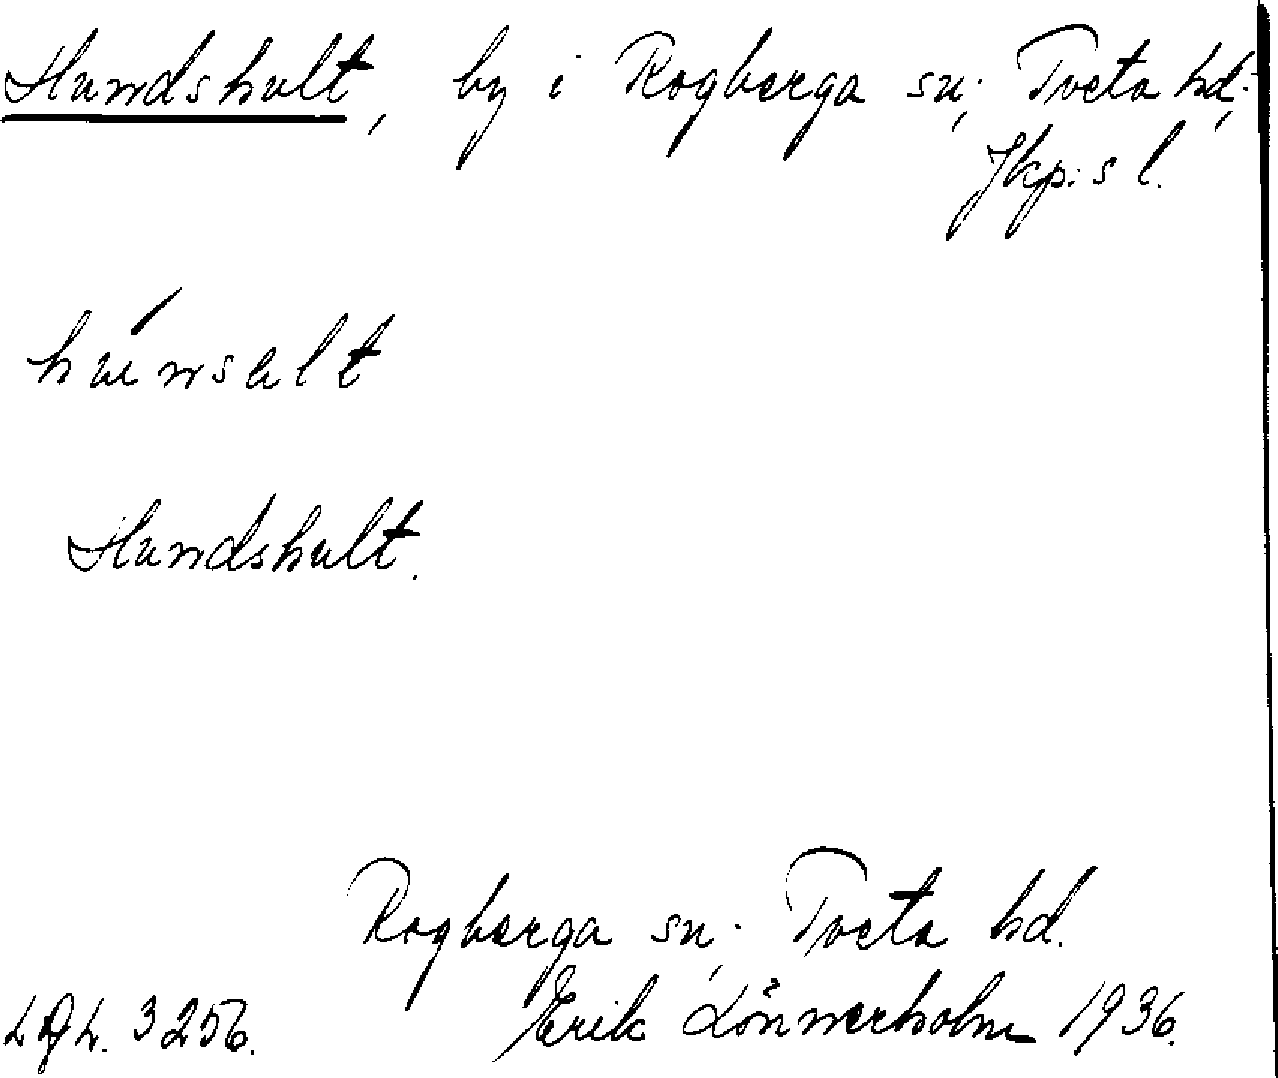 Hundshult, by i Rogberga sn; Tveta hd;
Jkp:s l.
húnsalt
Hundshult.
Rogberga sn; Tveta hd.
3256. Erik Lönnerholm 1936.